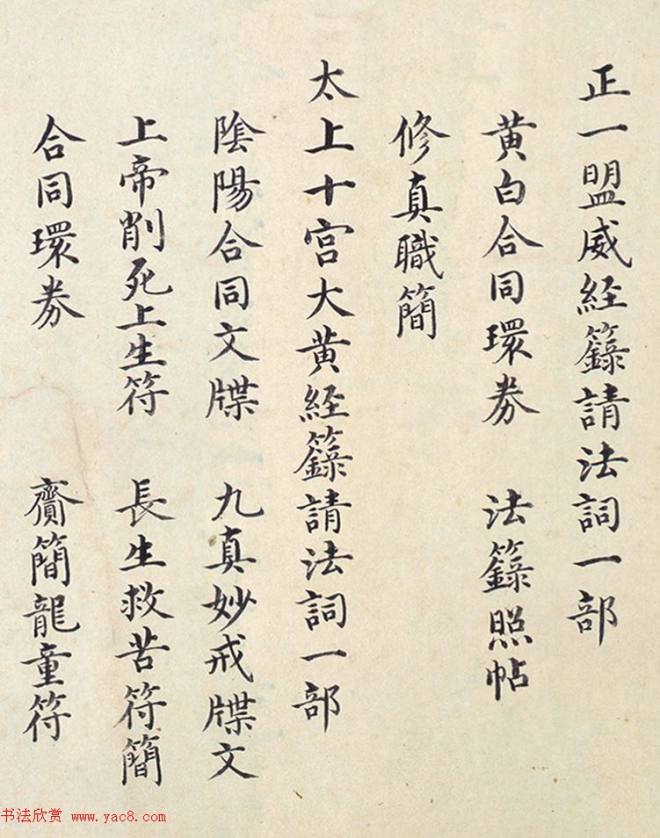 正一盟威经籙請法詞一部
黄白合同環券　法籙照帖
修真職簡
太上十宫大黄经籙請法詞一部
陰陽合同文牒　九真妙戒牒文
上帝削死上生符　長生救苦符簡
合同環券　齎簡龍童符
书法欣赏 www.yac8.com